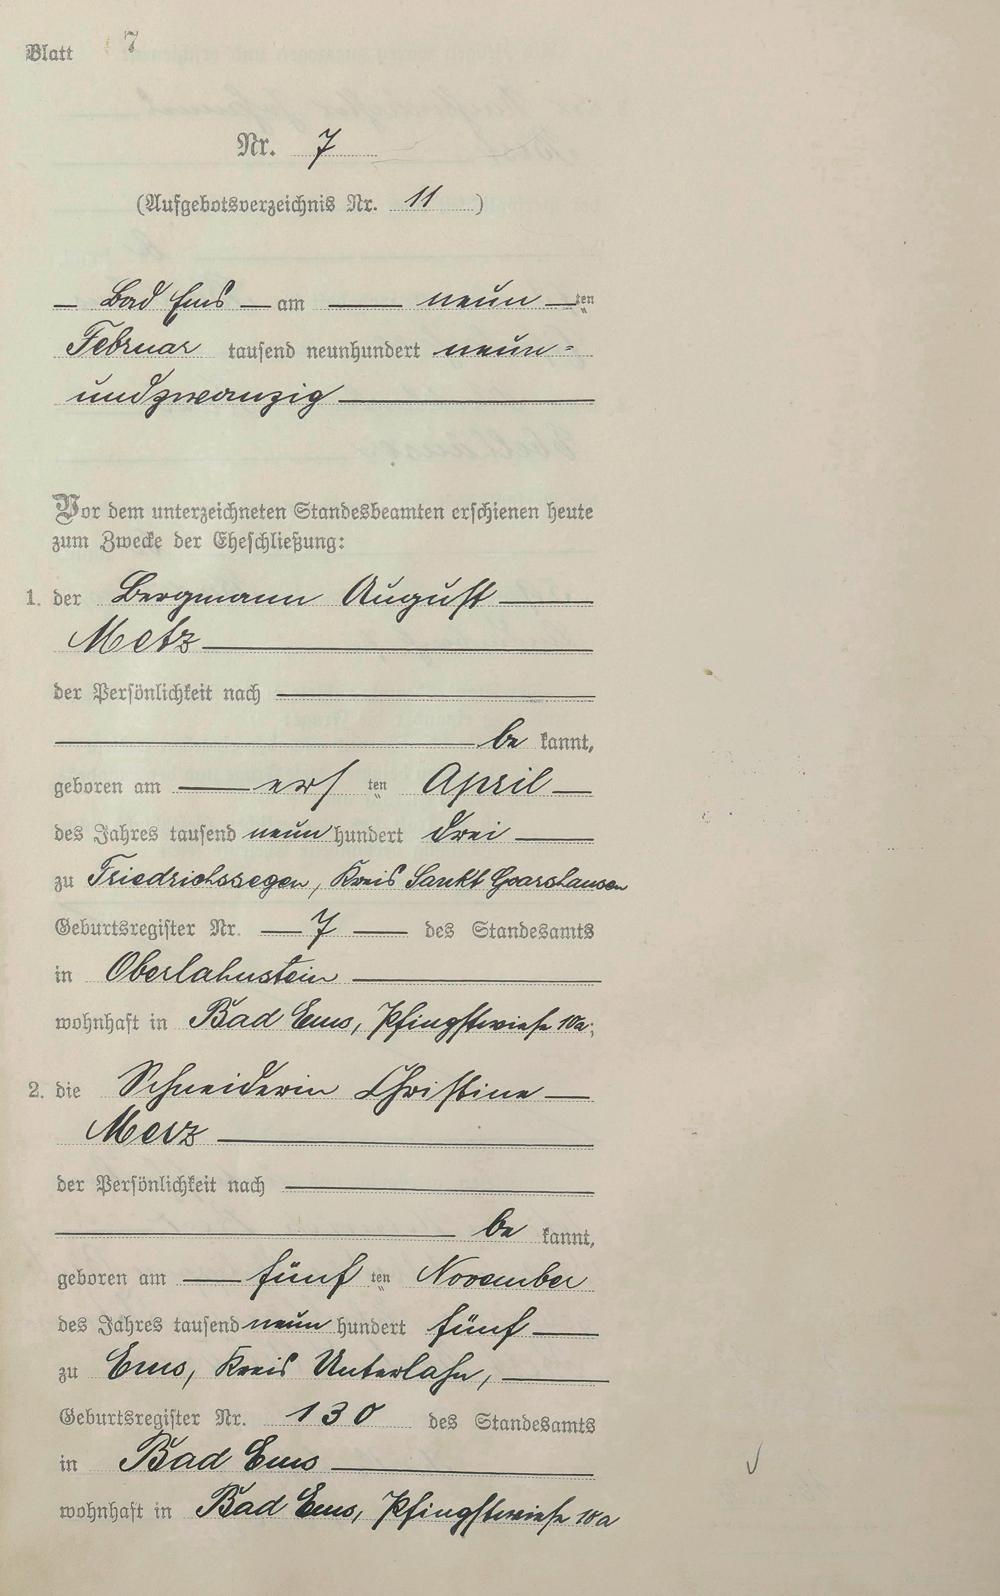 Blatt 7
Nr. 7
(Aufgebotsverzeichnis Nr. 11)
— Bad Ems — am — neun — ten
Februar tausend neunhundert neun=
undzwanzig —
Vor dem unterzeichneten Standesbeamten erschienen heute
zum Zwecke der Eheschließung:
1. der Bergmann August —
Metz —
der Persönlichkeit nach —
— be kannt,
geboren am — ers ten April —
des Jahres tausend neun hundert drei —
zu Friedrichssegen, Kreis Sankt Goarshausen
Geburtsregister Nr. — 7 — des Standesamts
in Oberlahnstein —
wohnhaft in Bad Ems, Pfingstwiese 10a;
2. die Schneiderin Christine —
Merz —
der Persönlichkeit nach —
— be kannt,
geboren am — fünf ten November
des Jahres tausend neun hundert fünf —
zu Ems, Kreis Unterlahn, —
Geburtsregister Nr. 130 des Standesamts
in Bad Ems —
wohnhaft in Bad Ems, Pfingstwiese 10a